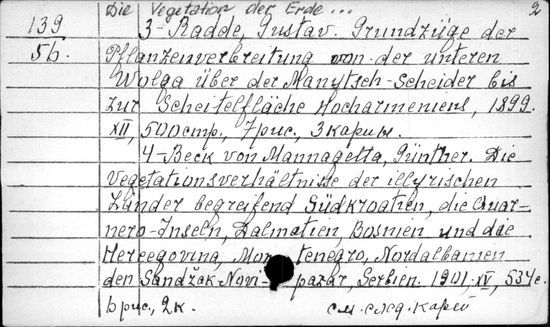 Die Vegetation der Erde... 2
139 3- Radde, Gustav. Grundzüge der
56. Pflanzenverbreitung von der unteren
Wolga über der Manytsch-Scheider bis
zur Scheitelfläche Hocharmeniens, 1899.
XII, 500стр., 7рис., 3карты.
4- Beck von Mannagetta, Günther. Die
Vegetationsverhältnisse der illyrischen
Länder begreifend Südkroatien, die Quar-
nero-Inseln, Dalmatien, Bosnien und die
Hercegovina, Montenegro, Nordalbanien
den Sandžak Novipazar, Serbien. 1901. XV, 534с.
6рис., 2к. см. след. карт